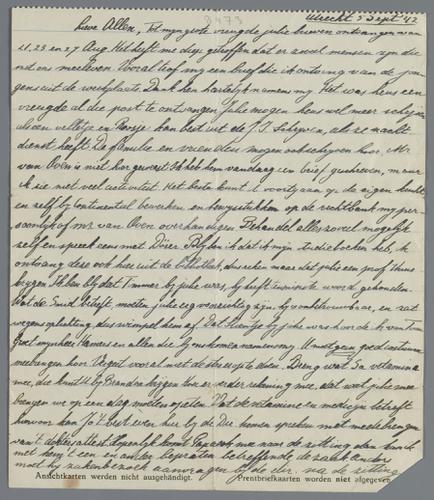 8473
Utrecht 5 Sept '42
Lieve Allen, Tot mijn groote vreugde jullie brieven ontvangen van
23, 25 en 27 Aug. Het heeft me diep getroffen dat er zooveel menschen zijn die
met ons meeleven. Vooral trof mij een brief die ik ontving van de jon-
gens uit de werkplaats. Dank hen hartelijk namens mij. Het was heus een
vreugde al die post te ontvangen. Jullie mogen heus wel meer schrijven
als een velletje en Roosje kan best uit de
dienst heeft. De familie en vrienden mogen ook schrijven hoor. Mr
van Oven is niet hier geweest. Ik heb hem vandaag een brief geschreven, maar
ik zie niet veel activiteit. Het beste kunt U voortgaan op de eigen
en zelf bij Continental bewerken en bewijsstukken op de rechtbank mijn per-
soonlijk of mr van Oven overhandigen. Behandel alles zooveel mogelijk
zelf en spreek eens met Dürer. Blij ben ik dat ik mijn studieboeken heb, ik
ontvang deze ook hier uit de bibliotheek, dus reken maar dat jullie een prof thuis
krijgen. Ik ben blij dat Emmer bij jullie was, hij heeft tenminste woord gehouden.
Wat de Smit betreft moeten jullie erg voorzichtig zijn, hij is onbetrouwbaar, en zat
wegens oplichting, dus wimpel hem af. Dat Heintje bij jullie was hoorde ik van Tom
Groet mijnheer Hamers en allen die bij ons komen namens mij. U moet geen goed costuum
meebrengen hoor. Vergeet vooral niet de Breng wat Sa vitamina
mee, die kunt U bij Brandsa krijgen en er verder rekening mee, dat wat jullie mee
brengen we op een dag moeten opeten. Wat de vitamine en medicijn betreft
hiervoor kan Jo 't best even hier bij de Dir. komen spreken met meebrengen
van 't doktersattest. Hopelijk komt Papa ook mee naar de zitting dan kan ik
met hem 't een en ander bepraten betreffende de zaak anders
moet hij zakenbezoek aanvragen bij de dir. na de zitting
Ansichtkarten werden nicht ausgehändigt. Prentbriefkaarten worden niet afgegeven.